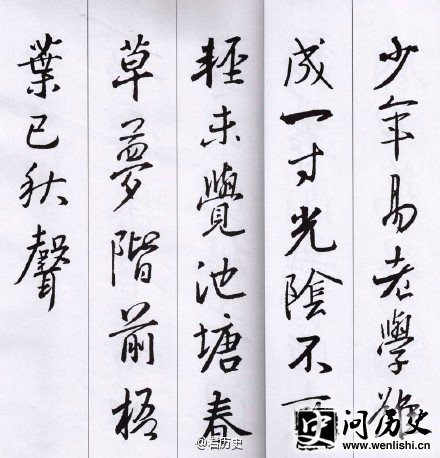 少年易老學難
成一寸光陰不可
輕未覺池塘春
草夢階前梧
葉已秋聲
@君历史
史 问历史
www.wenlishi.cn